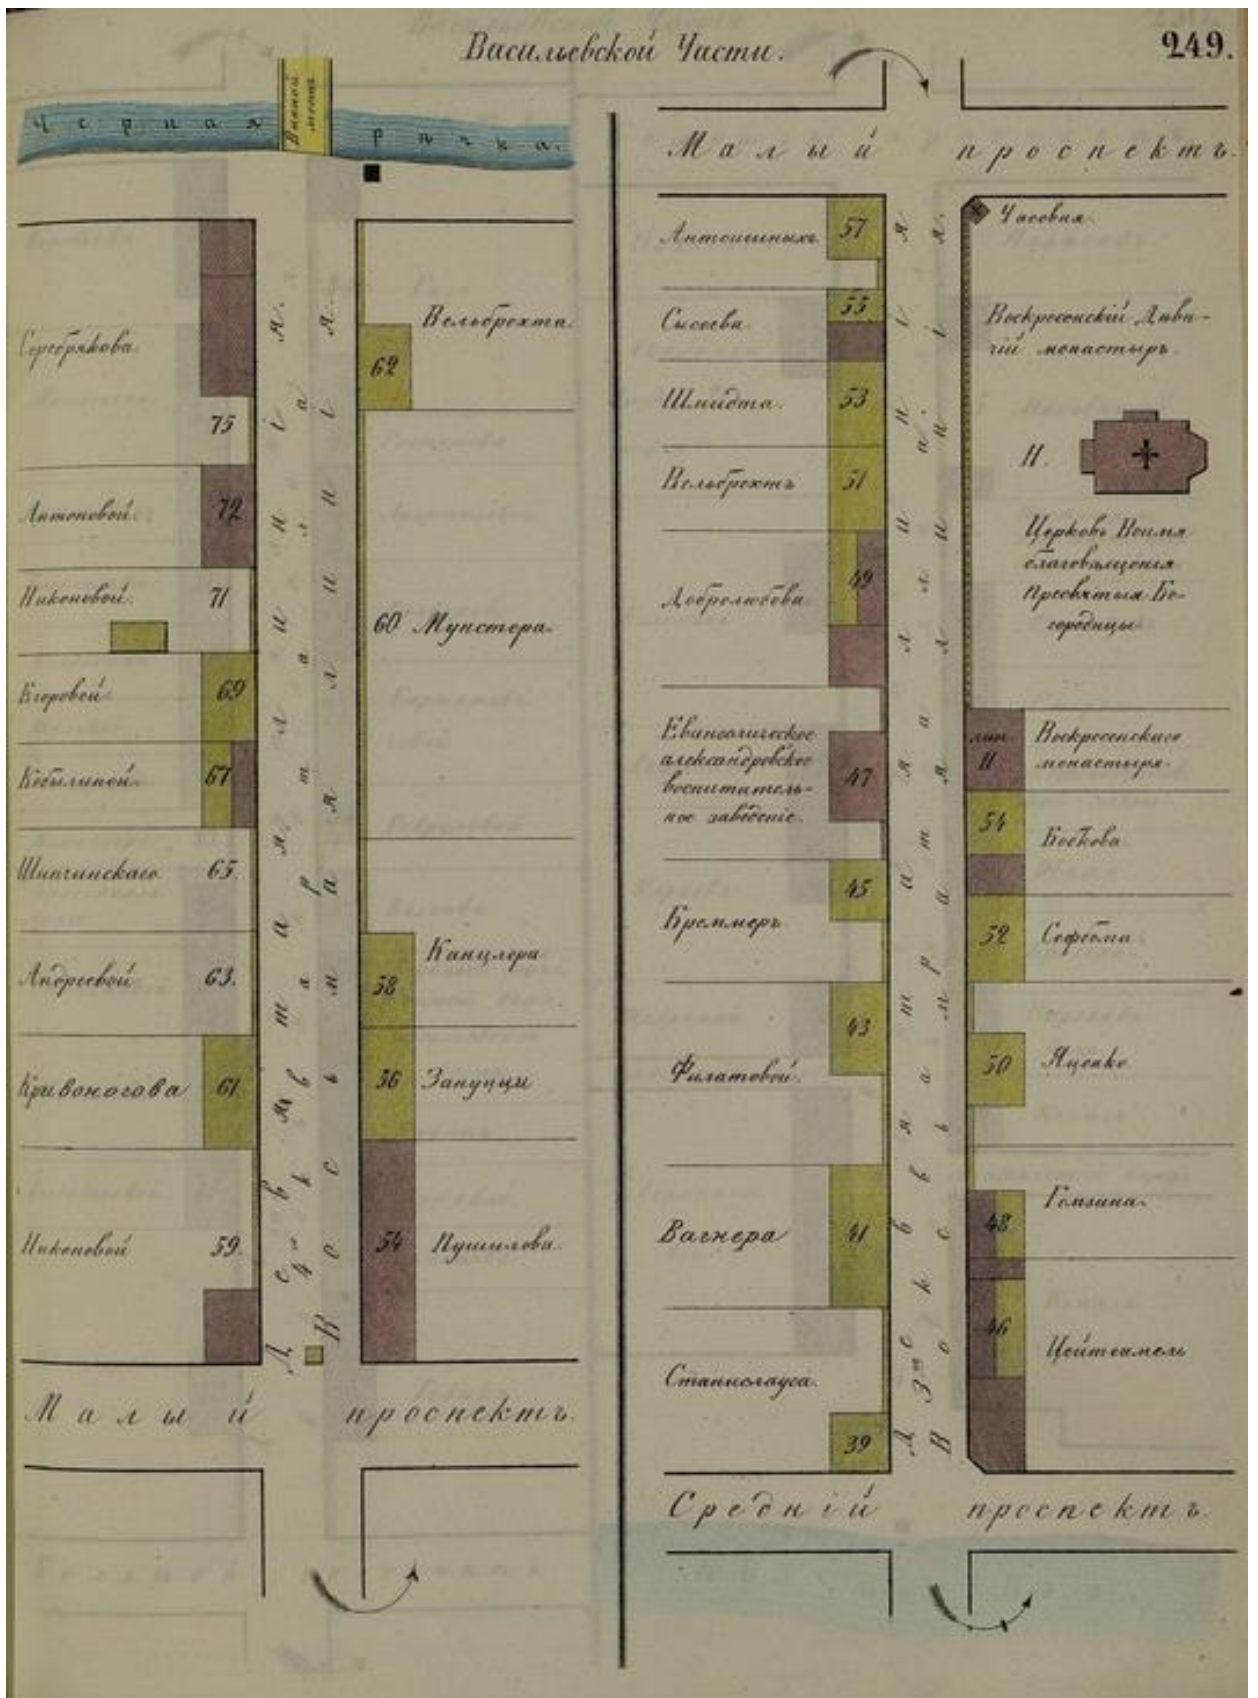 Васильевской Части.
249.
Черная рѣчка.
мостъ
Серебрякова.
75
Антоновой.
72
Никоновой.
71
Егоровой
69
Кобылиной.
67
65.
Андреевой
63.
Кривоногова
61
Никоновой
59.
Двѣнадцатая линія.
Вельброхта.
62
60 Мунстера.
Канцлера
58
56
Зануцци
54
Пушилова.
Малый проспектъ.
Малый проспектъ.
57
Сысоева.
55
Шмидта.
53
Вельброхтъ
51
Добролюбова.
49
Евангелическое
александровское
воспитатель-
ное заведеніе.
47
Креммеръ
45
Филатовой.
43
Вагнера
41
Станислауса.
39
Часовня.
Воскресенскій Дѣви-
чій монастырь.
Церковь Воимя
благовѣщенія
Пресвятыя Бо-
городицы
Воскресенскаго
монастыря.
54
52
50
Яценко.
48
46
Средній проспектъ.